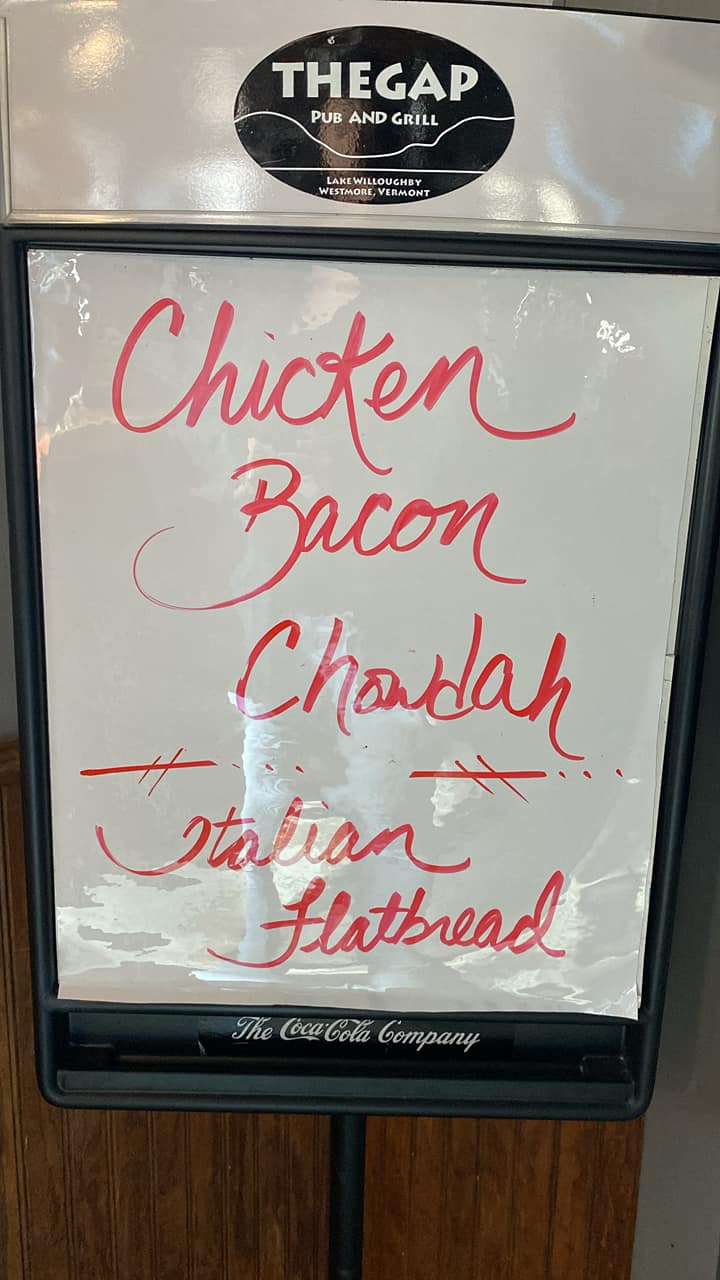 THE GAP
PUB AND GRILL
LAKE WILLOUGHBY
WESTMORE, VERMONT
Chicken
Bacon
Chowdah
Italian
Flatbread
The Coca-Cola Company